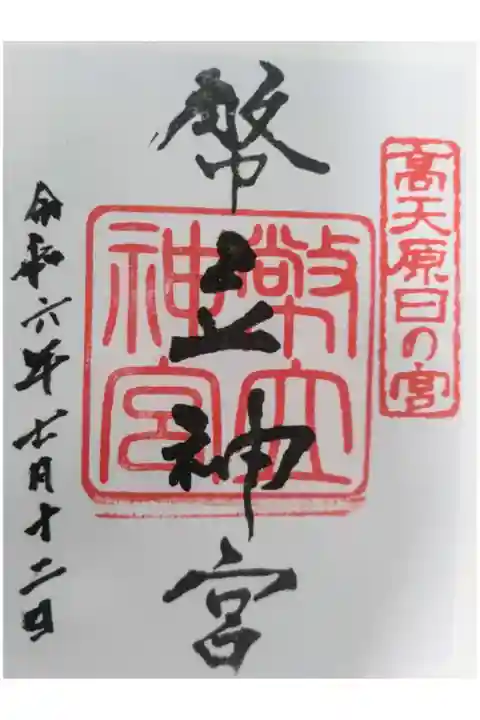 高天原日の宮
幣立神宮
幣立
神宮
令和六年七月十二日